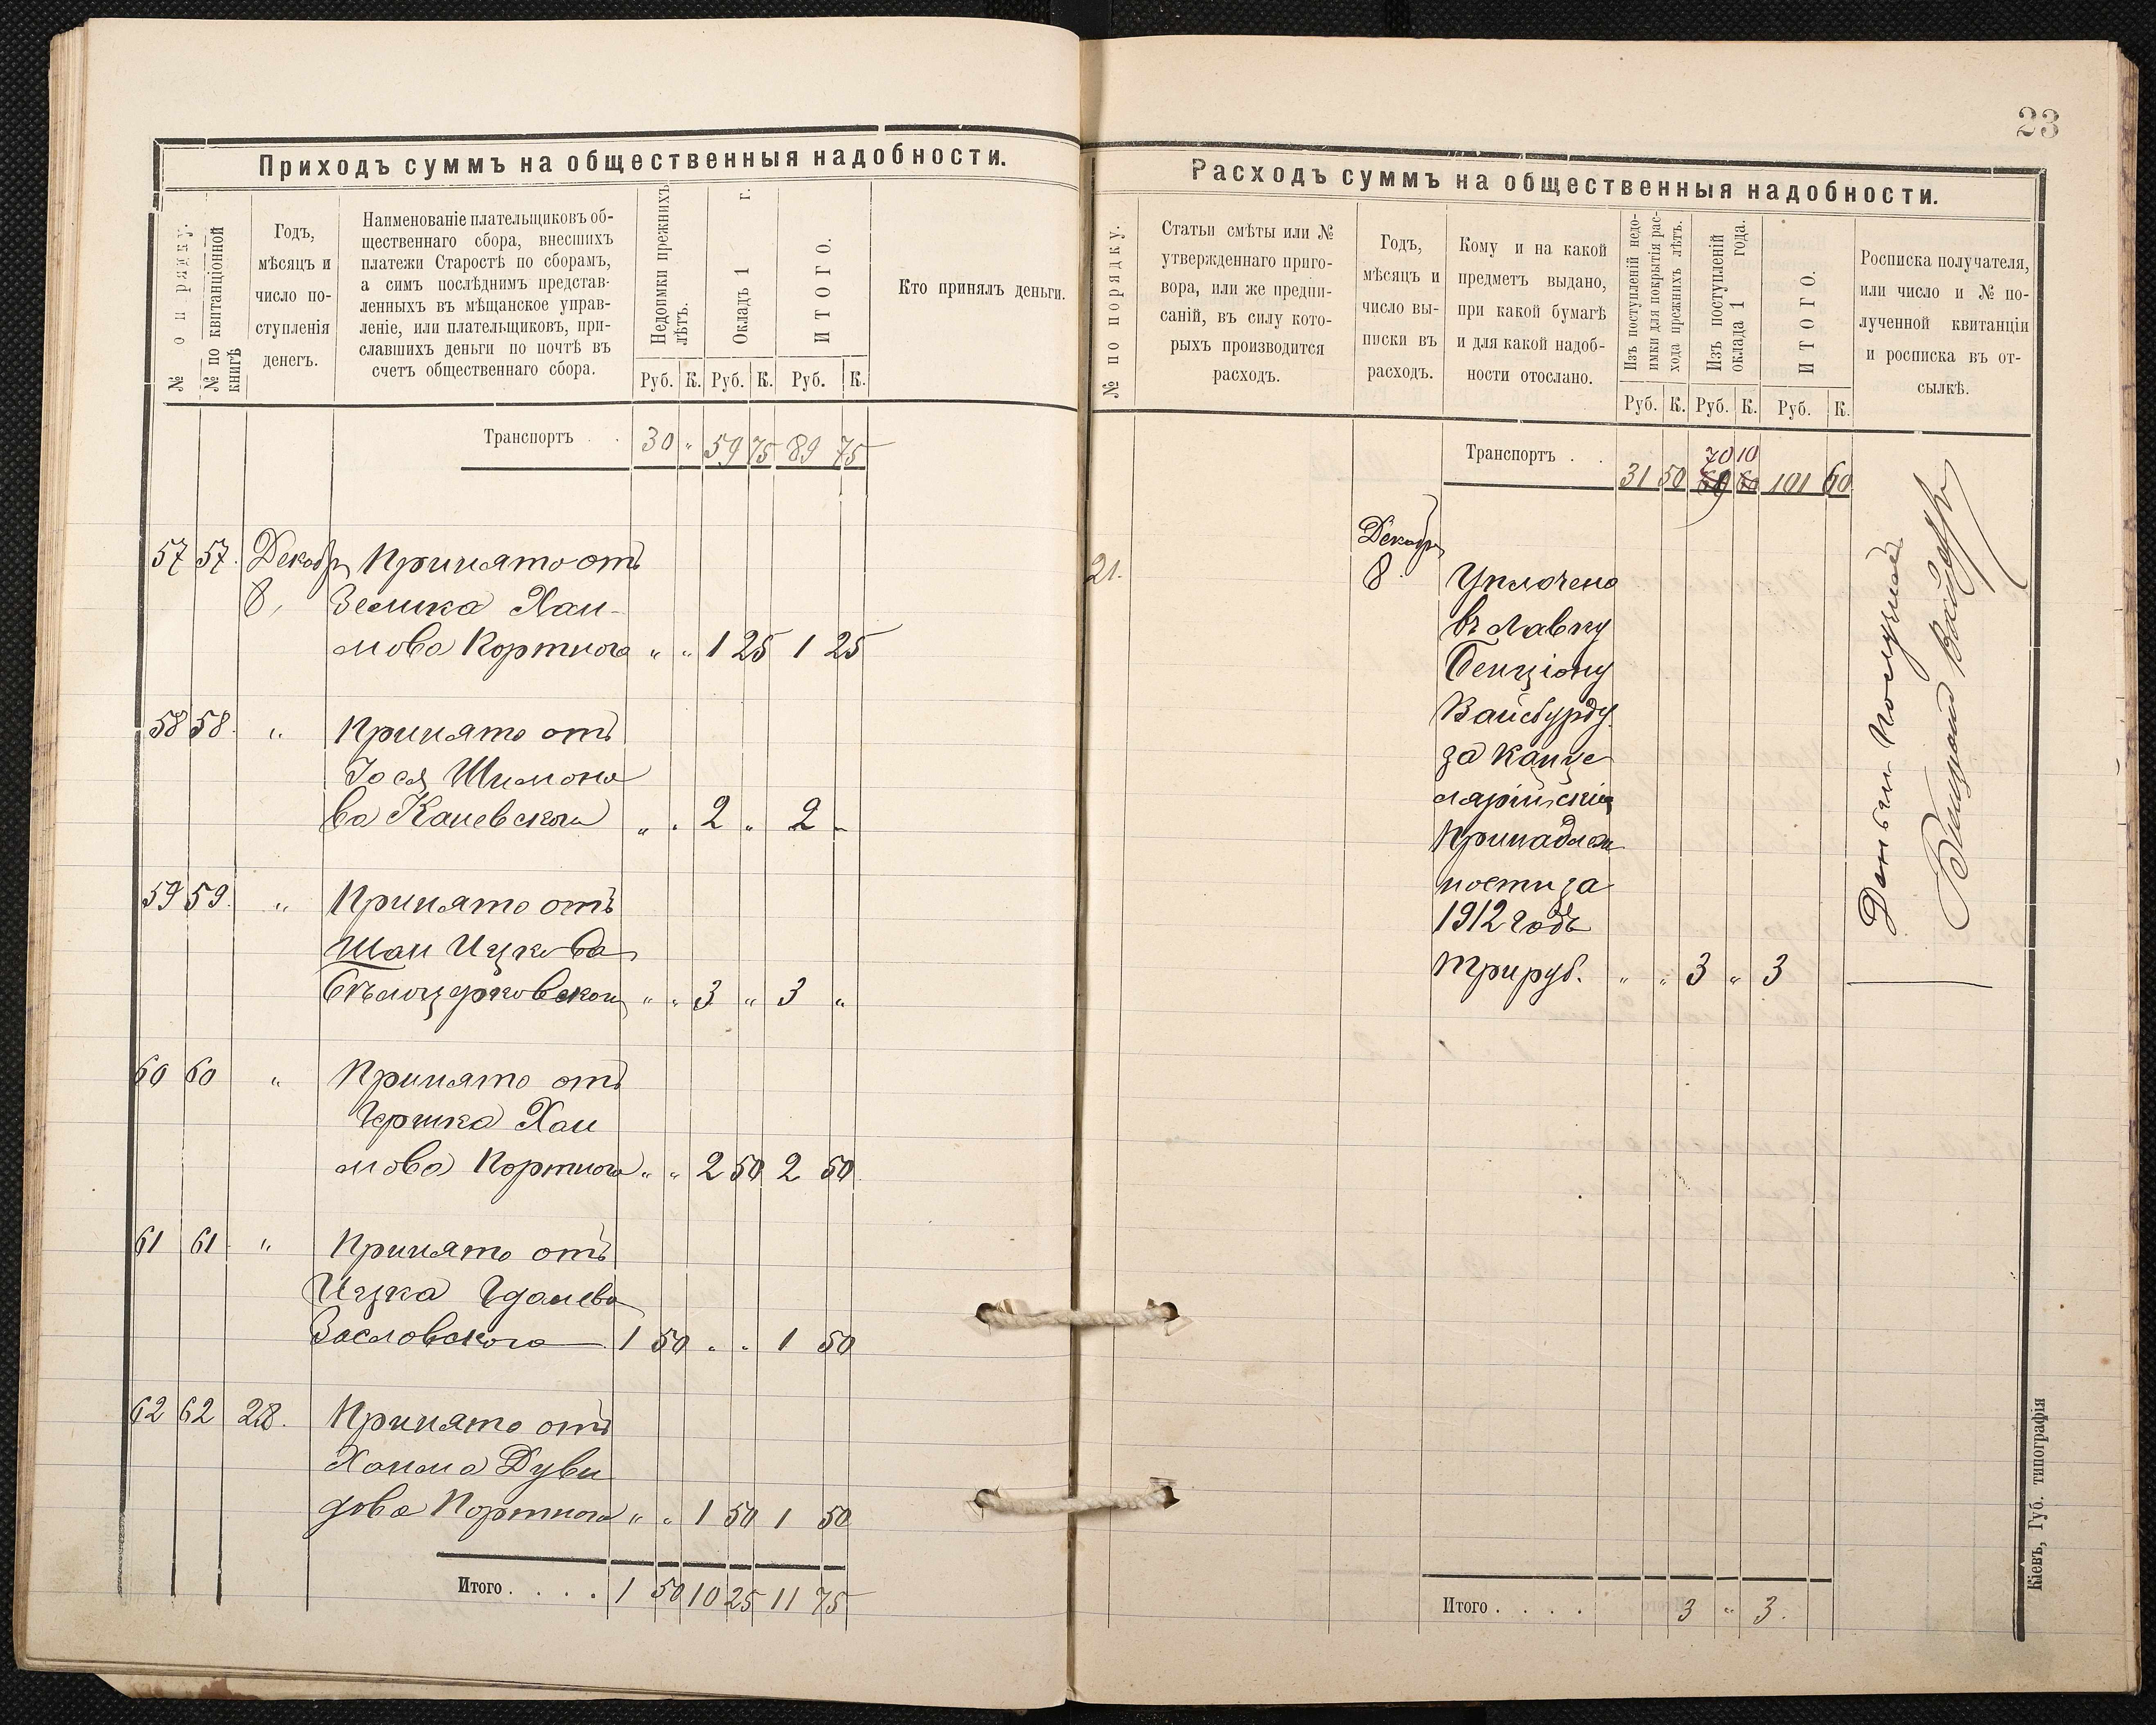 Приходъ суммъ на общественныя надобности.
№ по рядку.
№ по квитанціонной книгѣ
Годъ,
мѣсяцъ и
число по-
ступленія
денегъ.
Наименованіе плательщиковъ об-
щественнаго сбора, внесшихъ
платежи Старостѣ по сборамъ,
а симъ послѣднимъ представ-
ленныхъ въ мѣщанское управ-
леніе, или плательщиковъ, при-
славшихъ деньги по почтѣ въ
счетъ общественнаго сбора.
Недоимки прежнихъ
лѣтъ.
Окладъ 1 г.
ИТОГО.
Кто принялъ деньги.
Руб. К. Руб. К. Руб. К.
Транспортъ . . 30 " 59 75 89 75
57 57. Декабр. Принято отъ
8, Зелика Хаи-
мова Портного " " 1 25 1 25
58 58. " Принято отъ
Іося Шимоно
ва Каневского " " 2 " 2 "
59 59. " Принято отъ
Шаи Ицкова
Бѣлоцерковского " " 3 " 3 "
60 60 " Принято отъ
Гершка Хаи
мова Портного " " 2 50 2 50
61 61 " Принято отъ
Ицка Гдалева
Засловского 1 50 " " 1 50
62 62 28. Принято отъ
Хаима Дуви
дова Портного " " 1 50 1 50
Итого . . . . 1 50 10 25 11 75
23
Расходъ суммъ на общественныя надобности.
№ по порядку.
Статьи смѣты или №
утвержденнаго приго-
вора, или же предпи-
саній, въ силу кото-
рыхъ производится
расходъ.
Годъ,
мѣсяцъ и
число вы-
писки въ
расходъ.
Кому и на какой
предметъ выдано,
при какой бумагѣ
и для какой надоб-
ности отослано.
Изъ поступленій недо-
имки для покрытія рас-
хода прежнихъ лѣтъ.
Изъ поступленій
оклада 1 года.
ИТОГО.
Росписка получателя,
или число и № по-
лученной квитанціи
и росписка въ от-
сылкѣ.
Руб. К. Руб. К. Руб. К.
70 10
Транспортъ . . 31 50 69 60 101 60
Декабр
21. 8. Уплочено
въ лавку
Бенціону
Вайсбурду
за канце
лярійскія
принадлеж
ности за
1912 годъ
три руб. " " 3 " 3
Деньги получилъ
Бенціонъ Вайсбурдъ
Итого . . . . 3 " 3.
Кіевъ, Губ. типографія